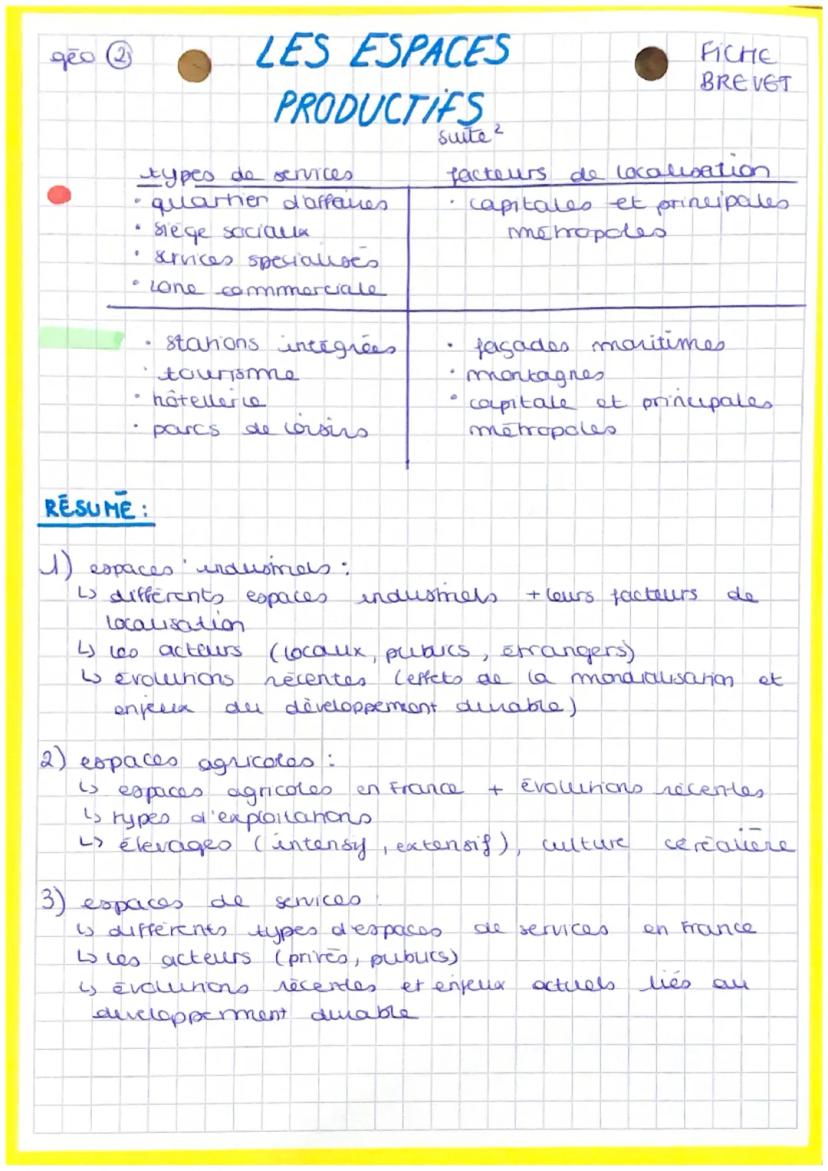 géo ②
LES ESPACES
PRODUCTIFS
suite ²
FICHE
BREVET
types de services
facteurs de localisation
• quartier d'affaires
• siège sociaux
• services spécialisés
• zone commerciale
• capitales et principales
métropoles
• stations intégrées
• tourisme
• hôtellerie
• parcs de loisirs
• façades maritimes
• montagnes
• capitale et principales
métropoles
RÉSUMÉ :
1) espaces industriels :
↳ différents espaces industriels + leurs facteurs de
localisation
↳ les acteurs (locaux, publics, étrangers)
↳ évolutions récentes (effets de la mondialisation et
enjeux du développement durable)
2) espaces agricoles :
↳ espaces agricoles en France + évolutions récentes
↳ types d'exploitations
↳ élevages (intensif, extensif), culture céréalière
3) espaces de services :
↳ différents types d'espaces de services en France
↳ les acteurs (privés, publics)
↳ évolutions récentes et enjeux actuels liés au
développement durable